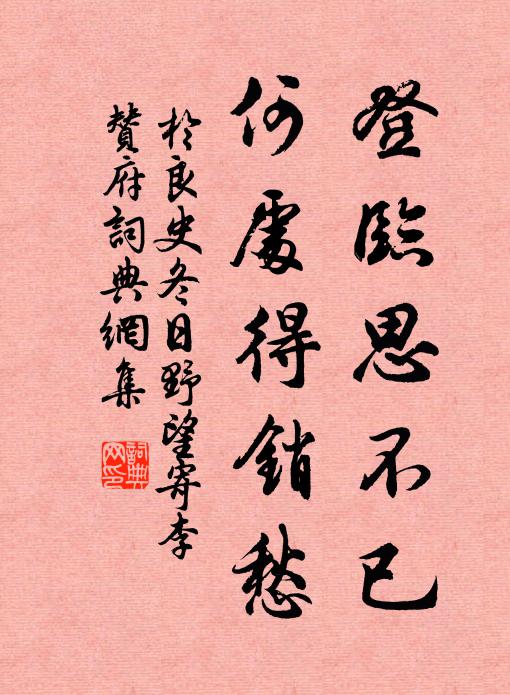 登臨思不已
何處得銷愁
於良史冬日野望寄李
贊府詞典網集
詞典
网印